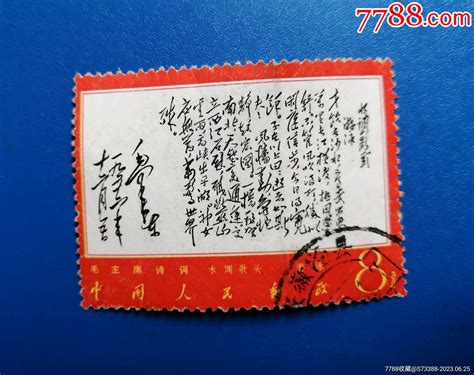 7788.com
水调歌头
游泳
才饮长沙水又食武昌鱼
万里长江横渡极目楚天舒
不管风吹浪打胜似
闲庭信步今日得宽
子在川上曰逝者如斯
夫风樯动龟蛇
静起宏图一桥飞架
南北天堑变通途更
立西江石壁截断巫山
云雨高峡出平湖神女
应无恙当惊世界
殊
毛泽东
一九五六年
十二月五日
毛主席诗词 水调歌头
中国人民邮政
8分
7788收藏@S73388-2023.06.25